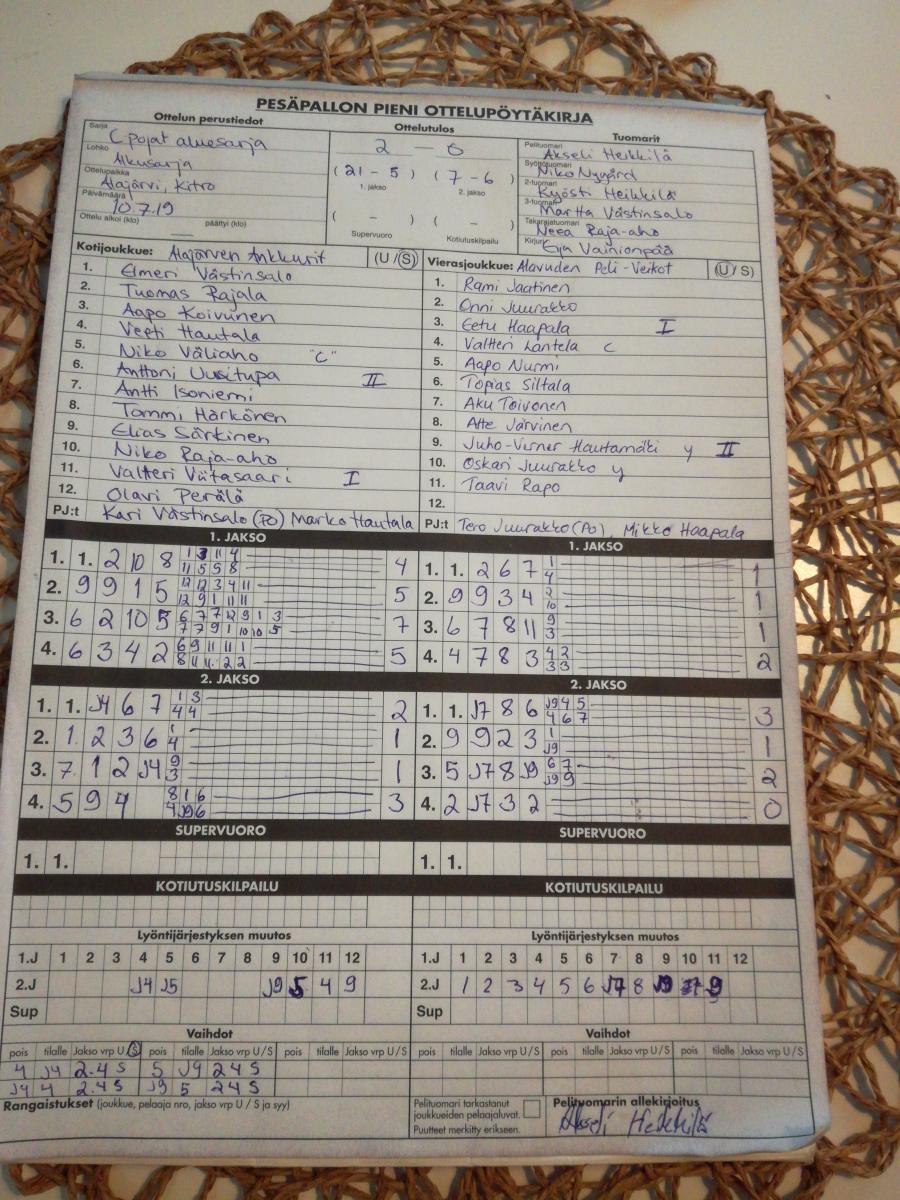 PESÄPALLON PIENI OTTELUPÖYTÄKIRJA
Ottelun perustiedot Ottelutulos Tuomarit
Sarja C pojat aluesarja
Lohko Alkusarja
Ottelupaikka Alajärvi, Kitro
Päivämäärä 10.7.19
Ottelu alkoi (klo) päättyi (klo)
2 — 0
( 21 - 5 ) ( 7 - 6 )
1. jakso 2. jakso
( - ) ( - )
Supervuoro Kotiutuskilpailu
Pelituomari Akseli Heikkilä
Syöttötuomari Niko Nygård
2-tuomari Kyösti Heikkilä
3-tuomari Martta Västinsalo
Takarajatuomari Neea Raja-aho
Kirjuri Eya Vainionpää
Kotijoukkue: Alajärven Ankkurit (U / S)
1. Elmeri Västinsalo
2. Tuomas Rajala
3. Aapo Koivunen
4. Veeti Hautala
5. Niko Väliaho "C"
6. Anttoni Uusitupa II
7. Antti Isoniemi
8. Tommi Härkönen
9. Elias Särkinen
10. Niko Raja-aho
11. Valtteri Viitasaari I
12. Olavi Perälä
PJ:t Kari Västinsalo (Po) Marko Hautala
Vierasjoukkue: Alavuden Peli-Veikot (U / S)
1. Rami Jaatinen
2. Onni Juurakko
3. Eetu Haapala I
4. Valtteri Lantela C
5. Aapo Nurmi
6. Topias Siltala
7. Aku Toivonen
8. Atte Järvinen
9. Juho-Verner Hautamäki y II
10. Oskari Juurakko y
11. Taavi Rapo
12.
PJ:t Tero Juurakko (Po), Mikko Haapala
1. JAKSO
1. 1. 2 10 8 1 3 11 4 4
11 5 5 8
2. 9 9 1 5 12 12 3 4 11 5
12 9 1 11 11
3. 6 2 10 5 6 7 7 12 9 1 3 7
7 7 9 1 10 10 5
4. 6 3 4 2 6 9 11 11 1 5
8 11 11 2 2
1. JAKSO
1. 1. 2 6 7 1 1
4
2. 9 9 3 4 2 1
10
3. 6 7 8 11 9 1
3
4. 4 7 8 3 4 2 2
3 3
2. JAKSO
1. 1. J4 6 7 1 3 2
4 4
2. 1 2 3 6 1 1
4
3. 7 1 2 J4 9 1
3
4. 5 9 4 8 1 6 3
4 J9 6
2. JAKSO
1. 1. J7 8 6 J9 4 5 3
4 6 7
2. 9 9 2 3 1 1
J9
3. 5 J7 8 J9 6 7 2
J9 9
4. 2 J7 3 2 0
SUPERVUORO SUPERVUORO
1. 1. 1. 1.
KOTIUTUSKILPAILU KOTIUTUSKILPAILU
Lyöntijärjestyksen muutos
1.J 1 2 3 4 5 6 7 8 9 10 11 12
2.J J4 J5 J9 5 4 9
Sup
Lyöntijärjestyksen muutos
1.J 1 2 3 4 5 6 7 8 9 10 11 12
2.J 1 2 3 4 5 6 J7 8 J9 9
Sup
Vaihdot
pois tilalle Jakso vrp U/S pois tilalle Jakso vrp U/S pois tilalle Jakso vrp U/S
4 J4 2.4 S 5 J9 2 4 S
J4 4 2.4 S J9 5 2 4 S
Vaihdot
pois tilalle Jakso vrp U/S pois tilalle Jakso vrp U/S pois tilalle Jakso vrp U/S
Rangaistukset (joukkue, pelaaja nro, jakso vrp U / S ja syy)
Pelituomari tarkastanut
joukkueiden pelaajaluvat.
Puutteet merkitty erikseen.
Pelituomarin allekirjoitus
Akseli Heikkilä